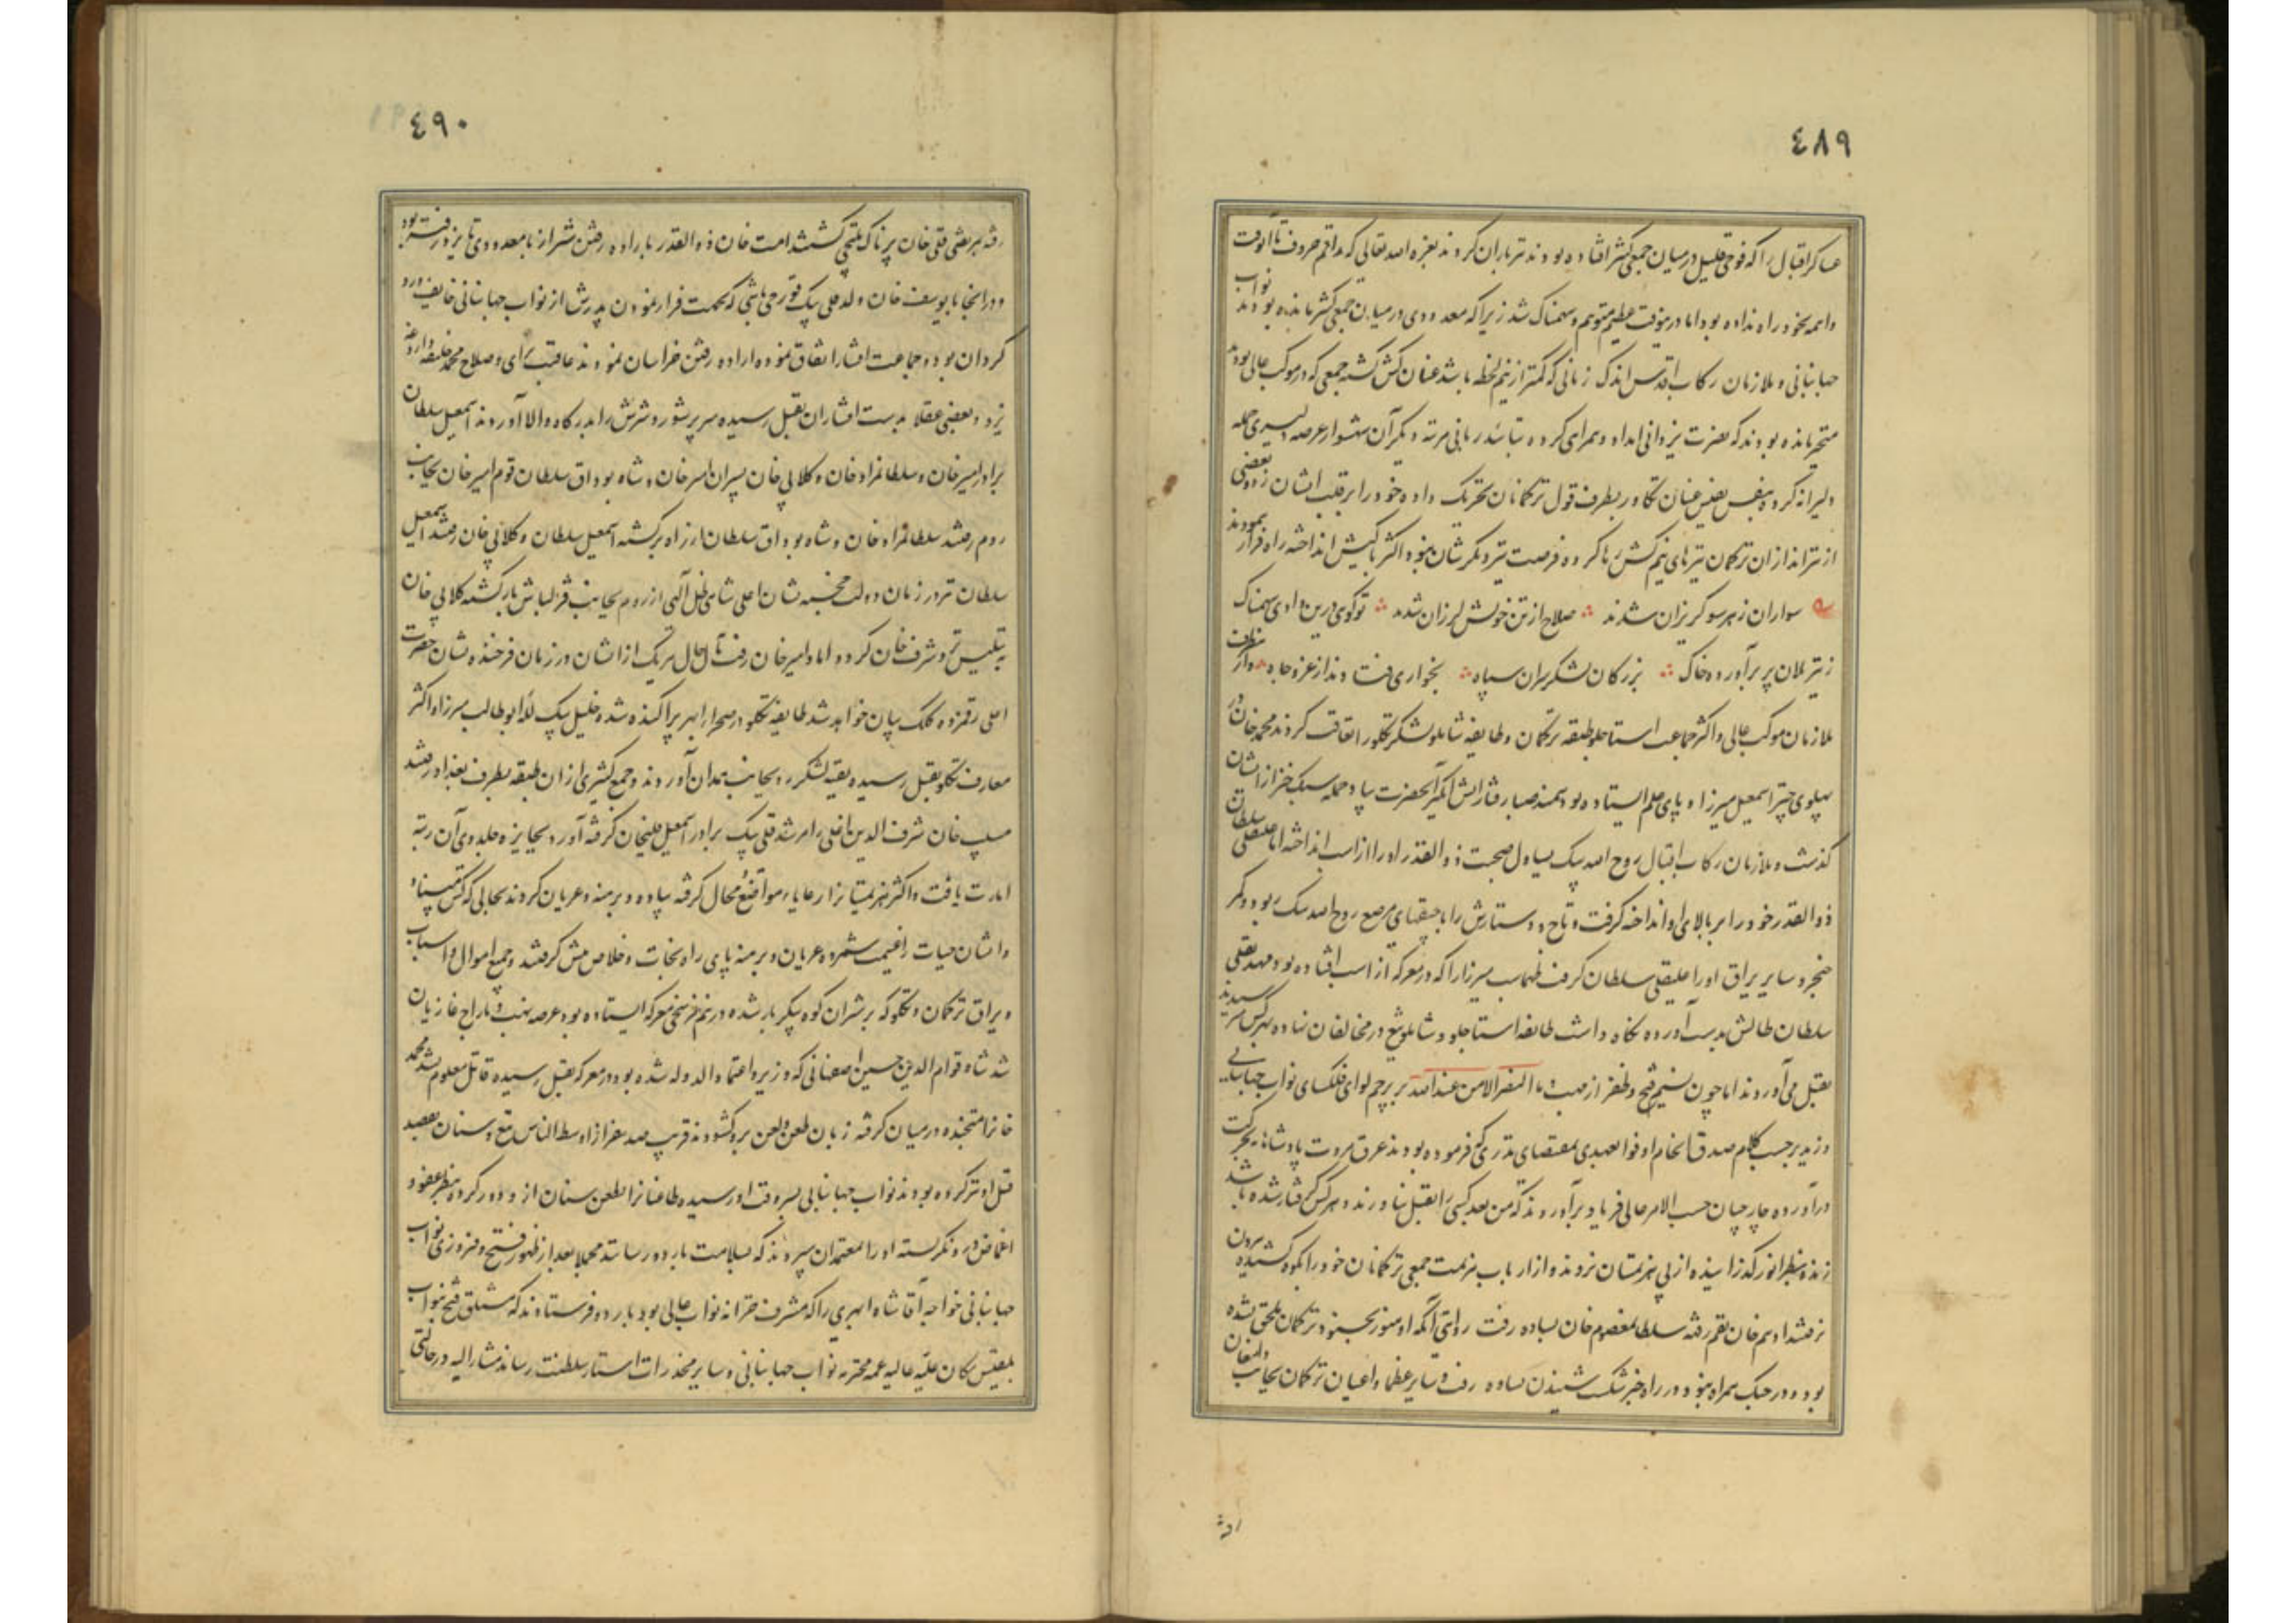 ٤٨٩
عساکر اقبال را که فوجی قلیل در میان جمعی کثیر افتاده بودند تیرباران کردند بعزه الله تعالی که راقم حروف تا آنوقت
واهمه بخود راه نداده بود اما درینوقت عظیم متوهم و سهمناک شد زیرا که معدودی در میان جمعی کثیر مانده بودند نواب
جهانبانی و ملازمان رکاب اقدس اندک زمانی که کمتر از نیم لحظه باشد عنان کش گشته جمعی که در موکب عالی بودند
متحیر مانده بودند که نصرت یزدانی امداد و همراهی کرده بتائید ربانی مرتبه دیگر آن شهسوار عرصه دلیری حمله
دلیرانه کرده بنفس نفیس عنان تکاور بطرف قول ترکمانان تحریک داده خود را بر قلب ایشان زدند بعضی
از تیراندازان ترکمان تیرهای نیم کش رها کرده فرصت تیر دیگرشان نبود اکثر باکیش انداخته راه فرار نمودند
سواران ز هر سو گریزان شدند صلاح از تن خویش لرزان شدند تو گویی درین وادی سهمناک
ز تیر یلان پر برآورده خاک بزرگان لشکر سران سپاه بخواری فتادند از عز و جاه و از طرف
ملازمان موکب عالی و اکثر جماعت استاجلو طبقه ترکمان و طایفه شاملو لشکر تکلو را تعاقب کردند محمد خان در
پهلوی چتر اسمعیل میرزا و پای علم ایستاده بود سمند صبا رفتار آتش انگیز آنحضرت بیاد حمله سبک خیز از ایشان
گذشت و ملازمان رکاب اقبال روح الله بیک یساول صحبت ذوالقدر او را از اسب انداخته اما علیقلی سلطان
ذوالقدر خود را بر بالای او انداخته گرفت و تاج و دستارش را با جیقهای مرصع روح الله بیک ربود و کمر
خنجر و سایر یراق او را علیقلی سلطان گرفت طهماسب میرزا را که در معرکه از اسب افتاده بود مهدیقلی
سلطان طالش بدست آورده نگاه داشت طایفه استاجلو و شاملو تیغ در مخالفان نهاده بهر کس میرسیدند
بقتل می آوردند اما چون نسیم فتح و ظفر از مهب و ما النصر الا من عند الله بر پرچم لوای فلکسای نواب جهانبانی
وزید برحسب کلام صدق انجام اوفوا بعهدی بمقتضای نذری که فرموده بودند عرق مروت پادشاهانه بحرکت
درآورده جارچیان حسب الامر عالی فریاد برآوردند که من بعد کسی را بقتل نیاورند و هر کس گرفتار شده باشد
زنده بنظر انور گذرانیده از پی هزیمتیان نروند و از ارباب هزیمت جمعی ترکمانان خود را بکوه کشیده بیرون
رفتند ادهم خان بقم رفته سلطان معصوم خان بساوه رفت روایتی آنکه او هنوز بجنود ترکمان ملحق نشده
بود و در جنگ همراه نبود در راه خبر شکست شنیدن بساوه رفت و سایر عظما و اعیان ترکمان بجانب دامغان
رفته
٤٩٠
رفته بمرتضی قلی خان پرناک ملتجی گشتند امت خان ذوالقدر باراده رفتن شیراز با معدودی تا یزد رفته بود
و در انجا با یوسف خان ولد قلی بیک قورچی باشی که بجهت فرار نمودن پدرش از نواب جهانبانی خایف و رو
گردان بوده جماعت افشار اتفاق نموده اراده رفتن خراسان نمودند عاقبت برای و صلاح محمد خلیفه داروغه
یزد و بعضی عقلا بدست افشاران بقتل رسیده سر پر شور و شرش را بدرگاه والا آوردند اسمعیل سلطان
برادر امیر خان و سلطانمراد خان و کلابی خان پسران امیر خان و شاه بوداق سلطان قوم امیر خان بجانب
روم رفتند سلطانمراد خان و شاه بوداق سلطان از راه برگشته اسمعیل سلطان و کلابی خان رفتند اسمعیل
سلطان نیز در زمان دولت خجسته نشان اعلی شاهی ظل آلهی از روم بجانب قزلباش بازگشته کلابی خان
به تبلیس نزد شرف خان کرد و اما ولد امیر خان رفت مآل حال هریک از ایشان در زمان فرخنده نشان حضرت
اعلی رقمزده کلک بیان خواهد شد طایفه تکلو در صحرا ابهر پراکنده شده خلیل بیک لله ابوطالب میرزا و اکثر
معارف تکلو بقتل رسیده بقیه لشکر رو بجانب همدان آوردند و جمع کثیری از ان طبقه بطرف بغداد رفتند
مسیب خان شرف الدین اغلی را مرشد قلی بیک برادر اسمعیل قلیخان گرفته آورد بجایزه و جلدوی آن رتبه
امارت یافت و اکثر هزیمتیانرا رعایا و مواضع محال گرفته پیاده و برهنه و عریان کردند بحالی که کس مبیناد
و ایشان حیات را غنیمت شمرده عریان و برهنه پای راه نجات و خلاص پیش گرفتند و جمیع اموال و اسباب
و یراق ترکمان و تکلو که بر شتران کوه پیکر بار شده در نیم فرسخی معرکه ایستاده بود عرصه نهب و تاراج غازیان
شد شاه قوام الدین حسین اصفهانی که وزیر و اعتماد الدوله شده بود در معرکه بقتل رسیده قاتل معلوم نشد محمد
خانرا متجنده در میان گرفته زبان طعن و لعن برو گشودند قریب صد نفر از اوسط الناس تیغ و سنان بقصد
قتل او تیز کرده بودند نواب جهانبانی بسر وقت او رسیده طاعنانرا بطعن سنان از و دور کرده بنظر عفو و
اغماض درو نگریسته او را بمعتمدان سپردند که بسلامت باردو رسانند مجملا بعد از ظهور فتح و فیروزی نواب
جهانبانی خواجه آقا شاه ابهری را که مشرف خزانه نواب عالی بود باردو فرستادند که مشتلق فتح بنواب
بلقیس مکان علیه عالیه عمه محترمه نواب جهانبانی و سایر مخدرات استار سلطنت رساند مشار الیه در حالتی